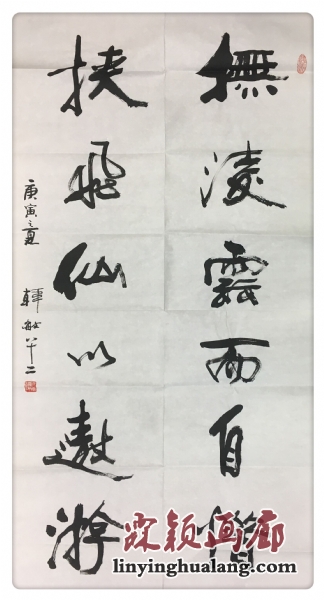 撫淩雲而自惜
挟飛仙以遨游
庚寅之夏 韓敏八十二
霖颖画廊
linyinghualang.com